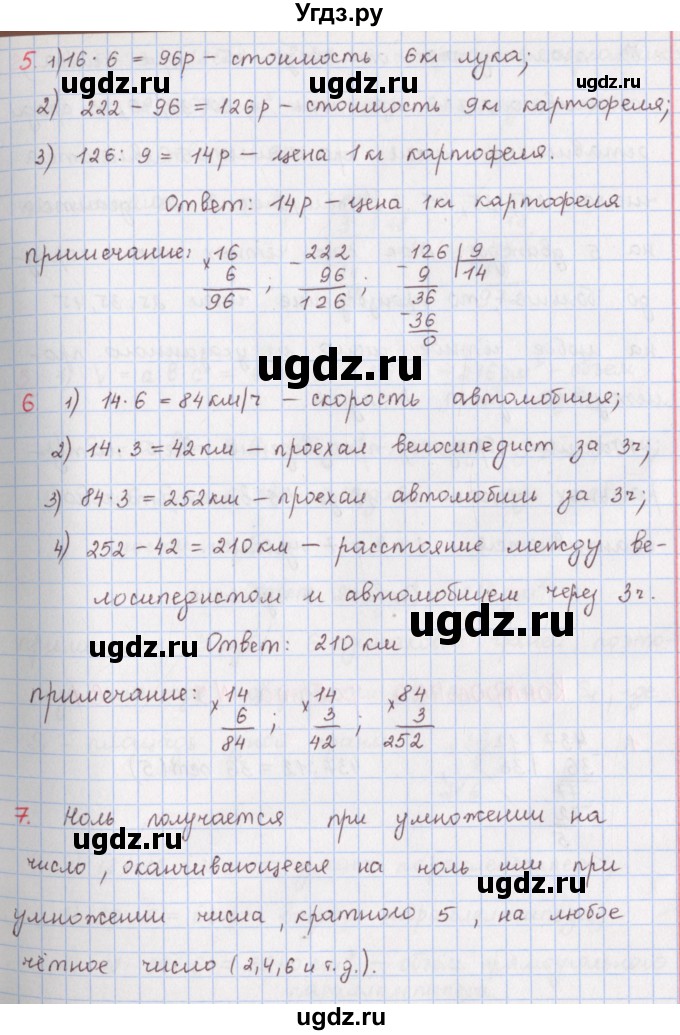 Угдз.ру
5 1) 16 · 6 = 96р – стоимость 6кг лука;
2) 222 – 96 = 126р – стоимость 9кг картофеля;
3) 126 : 9 = 14р – цена 1кг картофеля.
Ответ: 14р – цена 1кг картофеля
примечание: × 16 – 222 – 126 | 9
6 ; 96 ; 9 14
96 126 36
– 36
0
6 1) 14 · 6 = 84 км/ч – скорость автомобиля;
2) 14 · 3 = 42 км – проехал велосипедист за 3ч;
3) 84 · 3 = 252 км – проехал автомобиль за 3ч;
4) 252 – 42 = 210 км – расстояние между ве-
лосипедистом и автомобилем через 3ч.
Ответ: 210 км
примечание: × 14 × 14 × 84
6 ; 3 ; 3
84 42 252
7. Ноль получается при умножении на
число, оканчивающееся на ноль или при
умножении числа, кратного 5, на любое
чётное число (2,4,6 и т.д.).
ugdz.ru
ugdz.ru
ugdz.ru
ugdz.ru
ugdz.ru
ugdz.ru
ugdz.ru
ugdz.ru
ugdz.ru
ugdz.ru
ugdz.ru